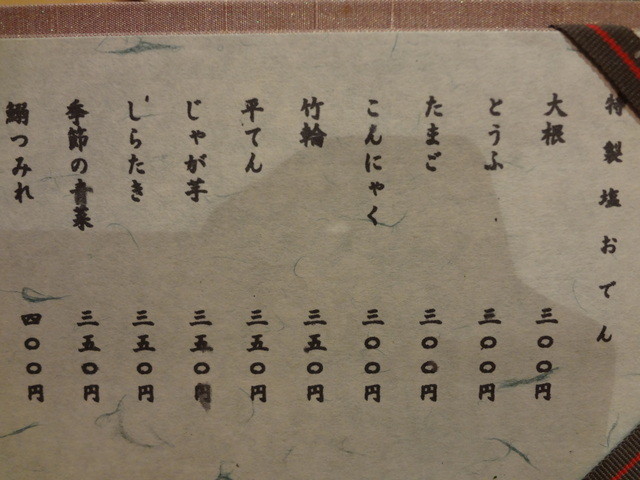 特製塩おでん
大根 三〇〇円
とうふ 三〇〇円
たまご 三〇〇円
こんにゃく 三〇〇円
竹輪 三五〇円
平てん 三五〇円
じゃが芋 三五〇円
しらたき 三五〇円
季節の青菜 三五〇円
鰯つみれ 四〇〇円